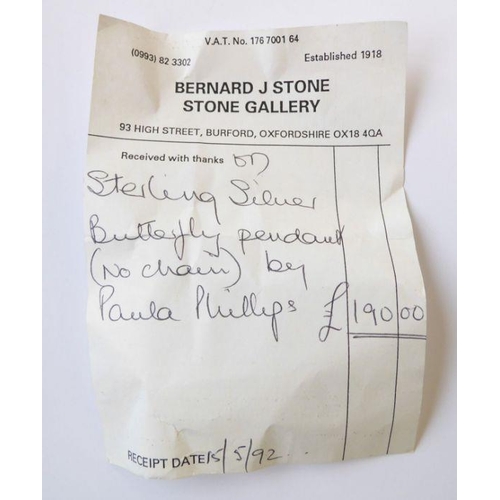 V.A.T. No. 176 7001 64
(0993) 82 3302 Established 1918
BERNARD J STONE
STONE GALLERY
93 HIGH STREET, BURFORD, OXFORDSHIRE OX18 4QA
Received with thanks
Sterling Silver
Butterfly pendant
(No chain) by
Paula Phillips £190 00
RECEIPT DATE 15/5/92